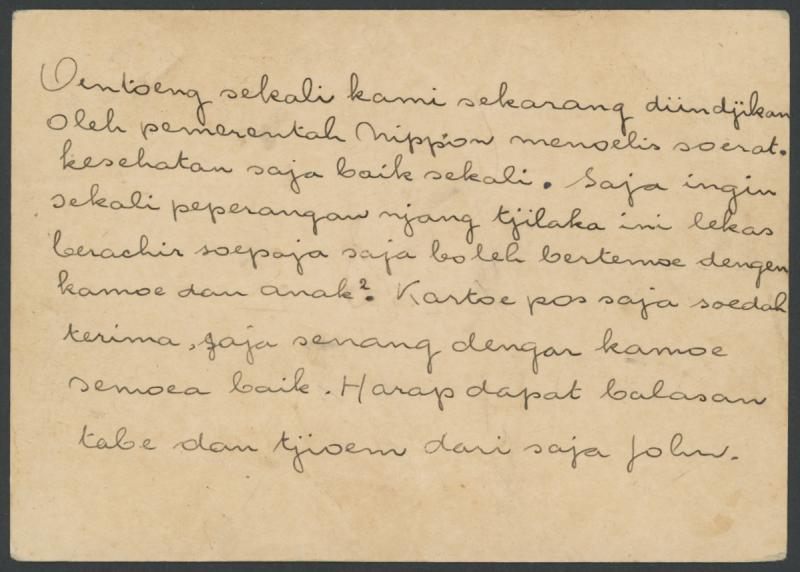 Oentoeng sekali kami sekarang diindjikan
oleh pemerentah Nippon menoelis soerat.
kesehatan saja baik sekali. Saja ingin
sekali peperangan njang tjilaka ini lekas
berachir soepaja saja boleh bertemoe dengen
kamoe dan anak². Kartoe pos saja soedah
terima, saja senang dengar kamoe
semoea baik. Harap dapat balasan
tabe dan tjioem dari saja John.